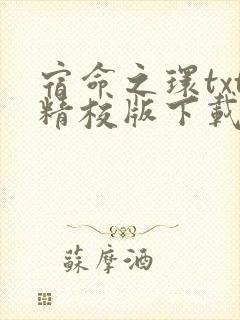 宿命之環txt
精校版下載
蘇摩酒